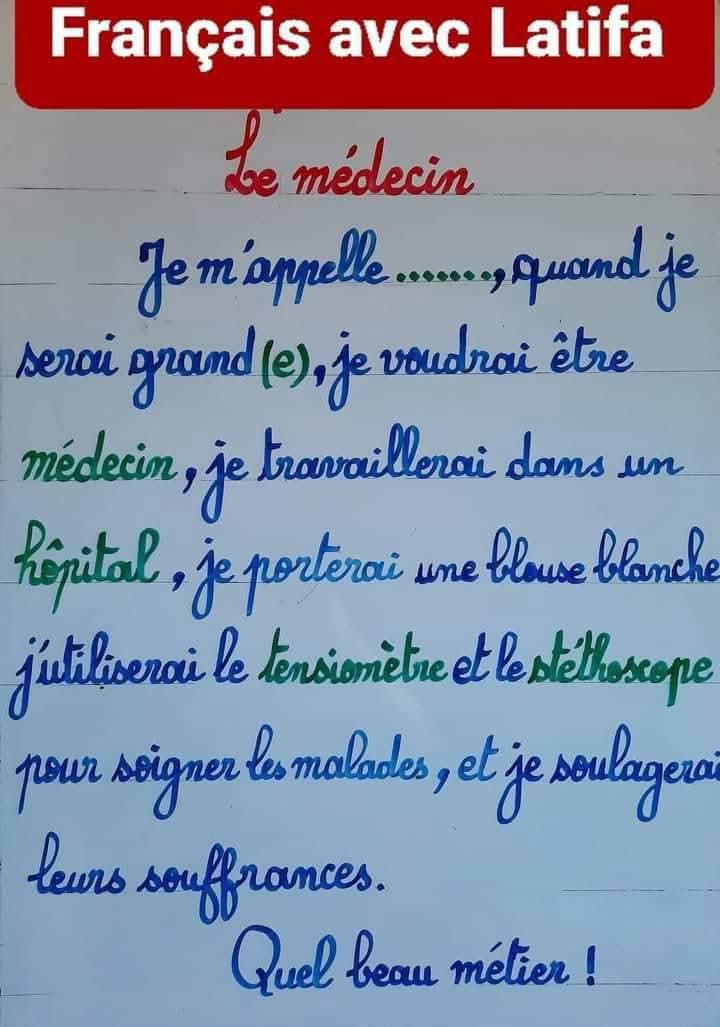 Français avec Latifa
Le médecin
Je m'appelle ......., quand je
serai grand(e), je voudrai être
médecin, je travaillerai dans un
hôpital, je porterai une blouse blanche
j'utiliserai le tensiomètre et le stéthoscope
pour soigner les malades, et je soulagerai
leurs souffrances.
Quel beau métier !